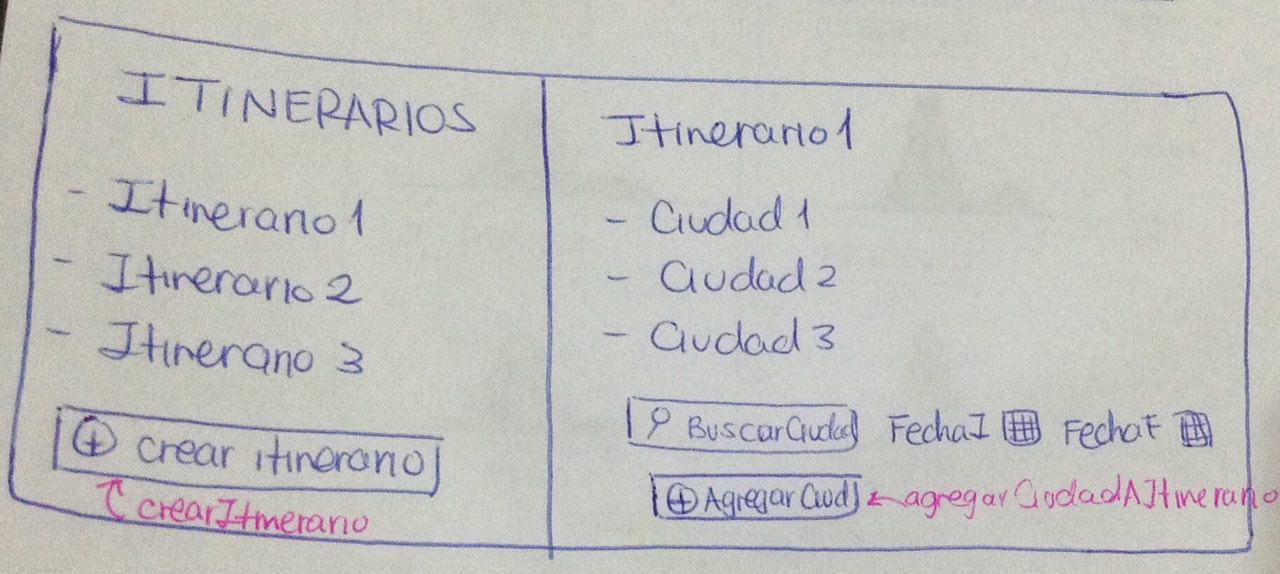 ITINERARIOS
- Itinerario 1
- Itinerario 2
- Itinerario 3
+ crear itinerario
crearItinerario
Itinerario 1
- Ciudad 1
- Ciudad 2
- Ciudad 3
Buscar Ciudad FechaI FechaF
+ Agregar Ciud ← agregarCiudadAItinerario